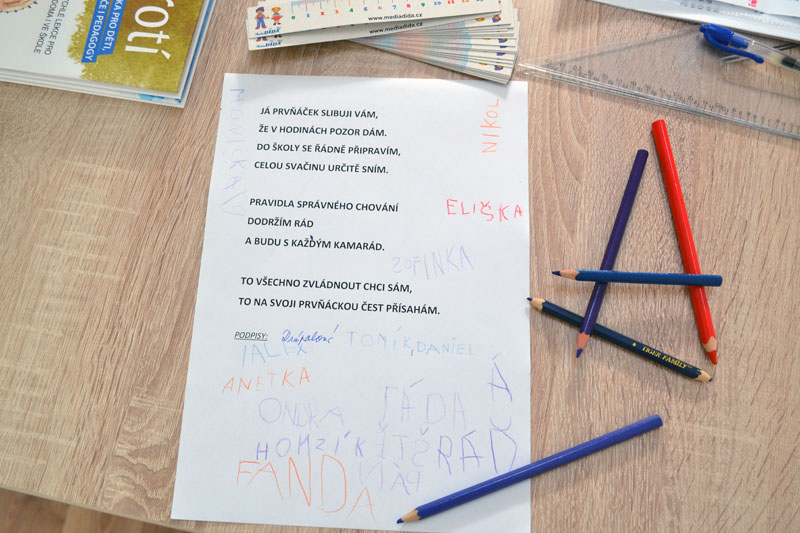 rotí
KA PRO DĚTI,
ČE I PEDAGOGY
YCHLÉ LEKCE PRO
DOMA I VE ŠKOLE
www.mediadida.cz
www.mediadida.cz
JÁ PRVŇÁČEK SLIBUJI VÁM,
ŽE V HODINÁCH POZOR DÁM.
DO ŠKOLY SE ŘÁDNĚ PŘIPRAVÍM,
CELOU SVAČINU URČITĚ SNÍM.
NIKOL
PRAVIDLA SPRÁVNÉHO CHOVÁNÍ
DODRŽÍM RÁD
A BUDU S KAŽDÝM KAMARÁD.
ELIŠKA
SOFINKA
TO VŠECHNO ZVLÁDNOUT CHCI SÁM,
TO NA SVOJI PRVŇÁCKOU ČEST PŘÍSAHÁM.
PODPISY:
TONÍK, DANIEL
ANETKA
ONDRA
TÁĎA
HONZÍK
FANDA
TIGER FAMILY